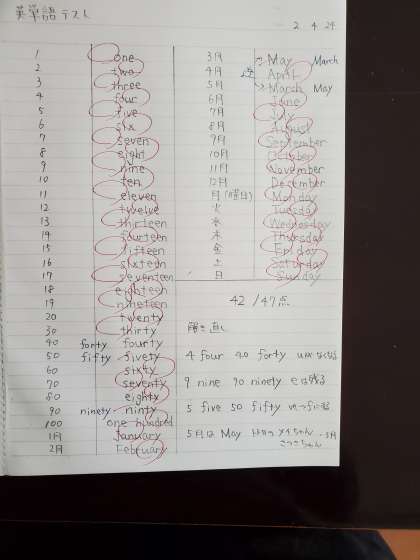 英単語テスト
2 4 24
1 one
2 two
3 three
4 four
5 five
6 six
7 seven
8 eight
9 nine
10 ten
11 eleven
12 twelve
13 thirteen
14 fourteen
15 fifteen
16 sixteen
17 seventeen
18 eighteen
19 nineteen
20 twenty
30 thirty
40 forty fourty
50 fifty fivety
60 sixty
70 seventy
80 eighty
90 ninety ninty
100 one hundred
1月 January
2月 February
3月 May March
4月 逆 April
5月 March May
6月 June
7月 July
8月 August
9月 September
10月 October
11月 November
12月 December
月(曜日) Monday
火 Tuesday
水 Wednesday
木 Thursday
金 Friday
土 Saturday
日 Sunday
42 / 47点
解き直し
4 four 40 forty uがなくなる
9 nine 90 ninety eは残る
5 five 50 fifty
5月は May メイちゃん 3月
さつきちゃん